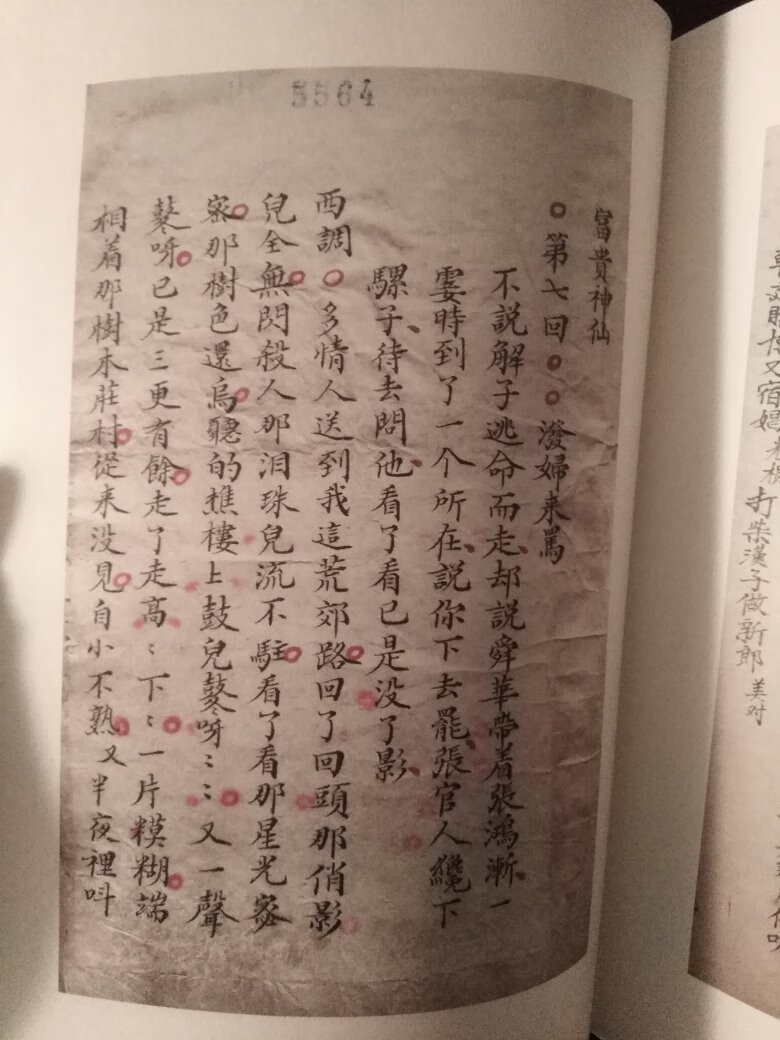 5564
富貴神仙
○第七回○○潑婦来罵
不說解子逃命而走、却說舜華帶着張鴻漸、一
霎時到了一个所在、說你下去罷、張官人纔下
騾子、待去問他、看了看已是没了影、
西調○多情人送到我這荒郊路回了回頭那俏影
兒全無閃殺人那泪珠兒流不駐看了看那星光密
密那樹色還烏聽的樵樓上鼓兒鼕呀〻〻又一聲
鼕呀已是三更有餘走了走高〻下〻一片糢糊端
相着那樹木莊村從来没見自小不熟又半夜裡呌
又宿娼
打柴漢子做新郎 美对